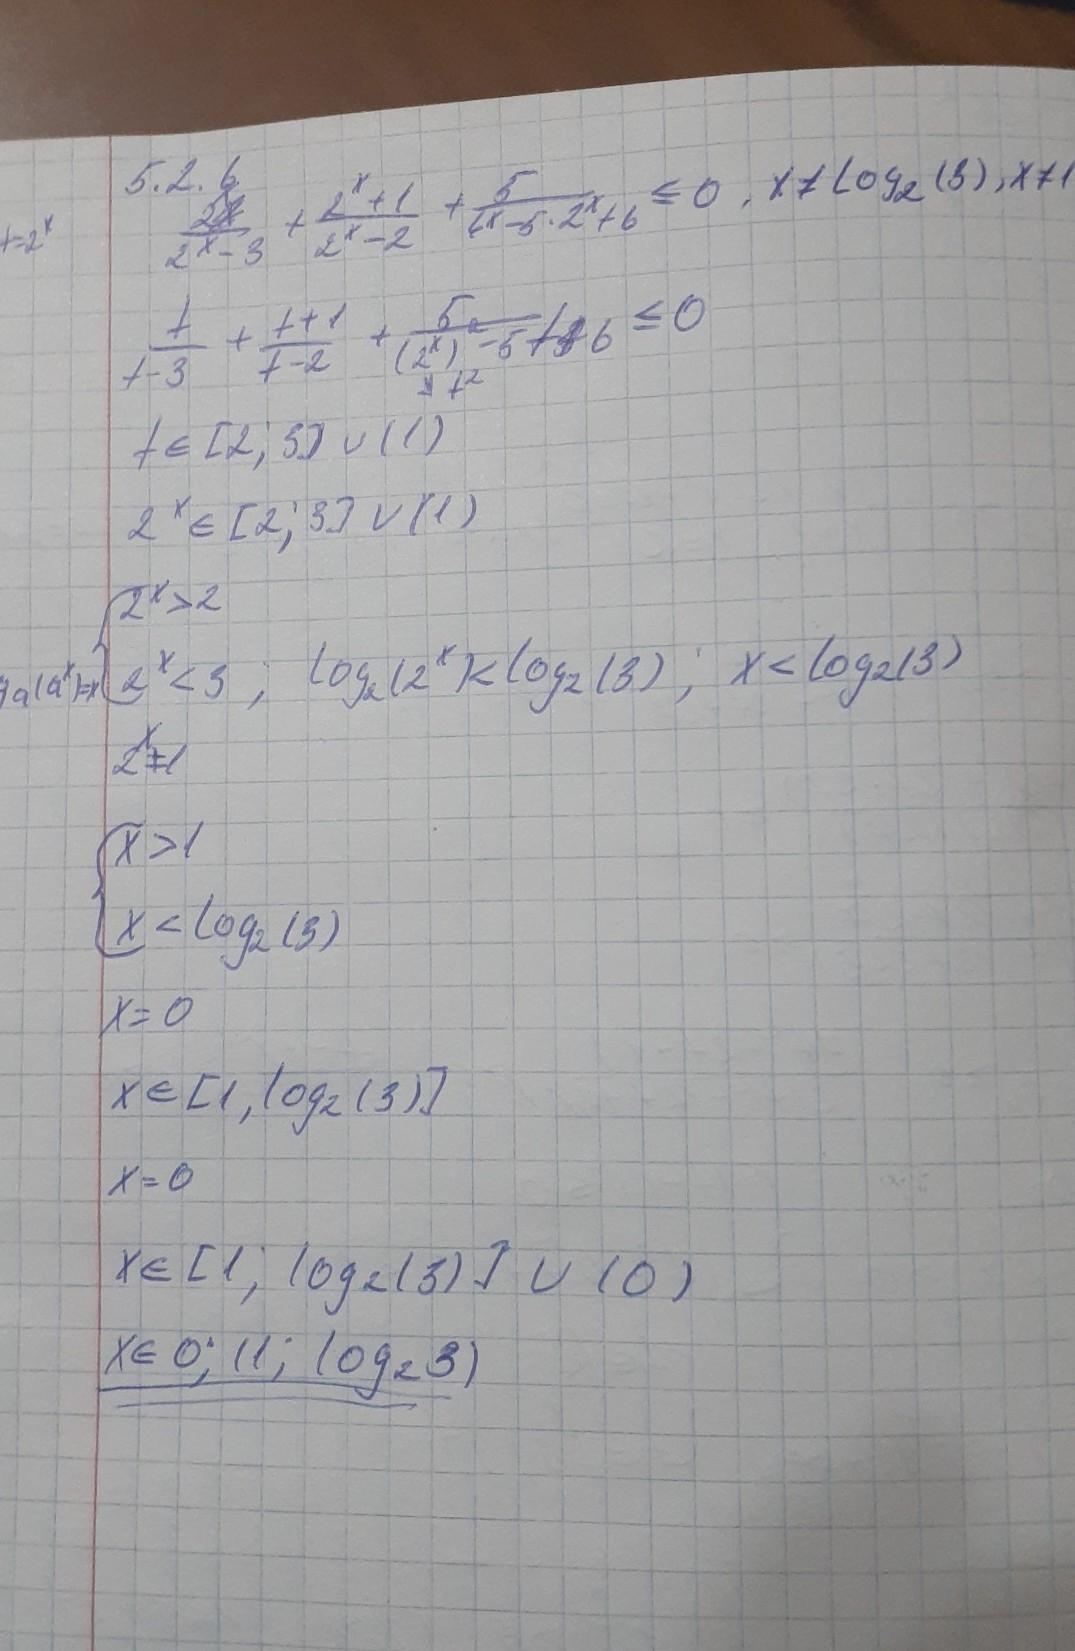 5.2.6
t=2^x
2^x/(2^x-3) + (2^x+1)/(2^x-2) + 5/(4^x-5·2^x+6) ≤ 0, x≠log₂(3), x≠1
t/(t-3) + (t+1)/(t-2) + 5/((2^x)²-5t+6) ≤ 0
t²
t∈[2;3]∪(1)
2^x∈[2;3]∪(1)
2^x>2
2^x<3; log₂(2^x)<log₂(3); x<log₂(3)
2^x=1
x>1
x<log₂(3)
x=0
x∈[1,log₂(3)]
x=0
x∈[1; log₂(3)]∪(0)
x∈0;(1; log₂3)